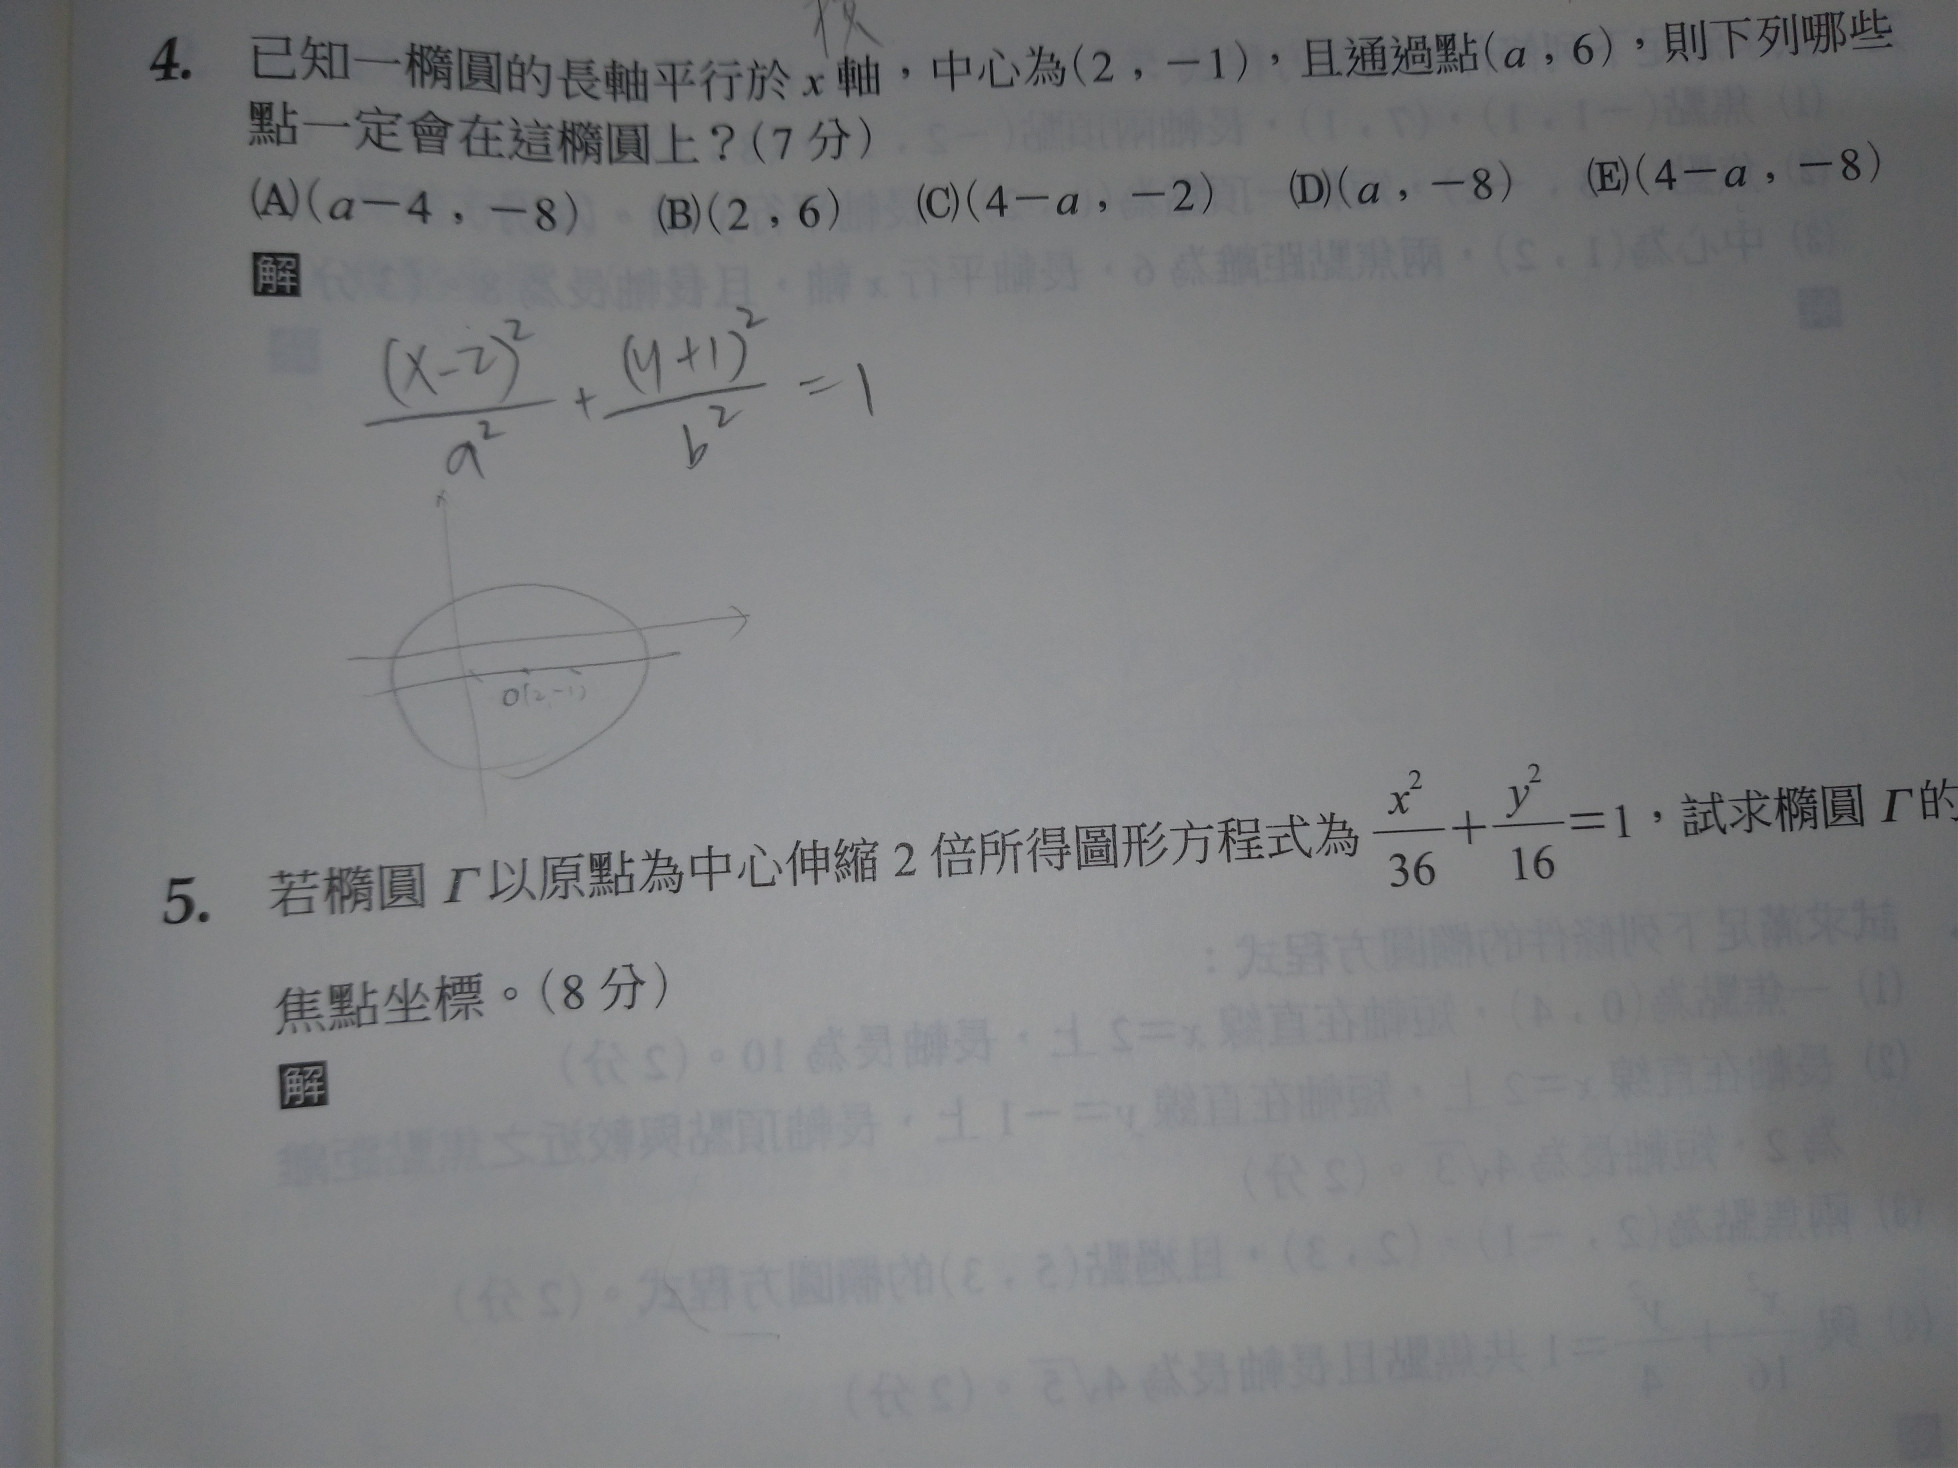 4. 已知一橢圓的長軸平行於 x 軸，中心為(2，−1)，且通過點(a，6)，則下列哪些
點一定會在這橢圓上？(7 分)
(A)(a−4，−8) (B)(2，6) (C)(4−a，−2) (D)(a，−8) (E)(4−a，−8)
解
(x-2)²/a² + (y+1)²/b² = 1
O(2,-1)
5. 若橢圓 Γ 以原點為中心伸縮 2 倍所得圖形方程式為 x²/36 + y²/16 = 1，試求橢圓 Γ 的
焦點坐標。(8 分)
解